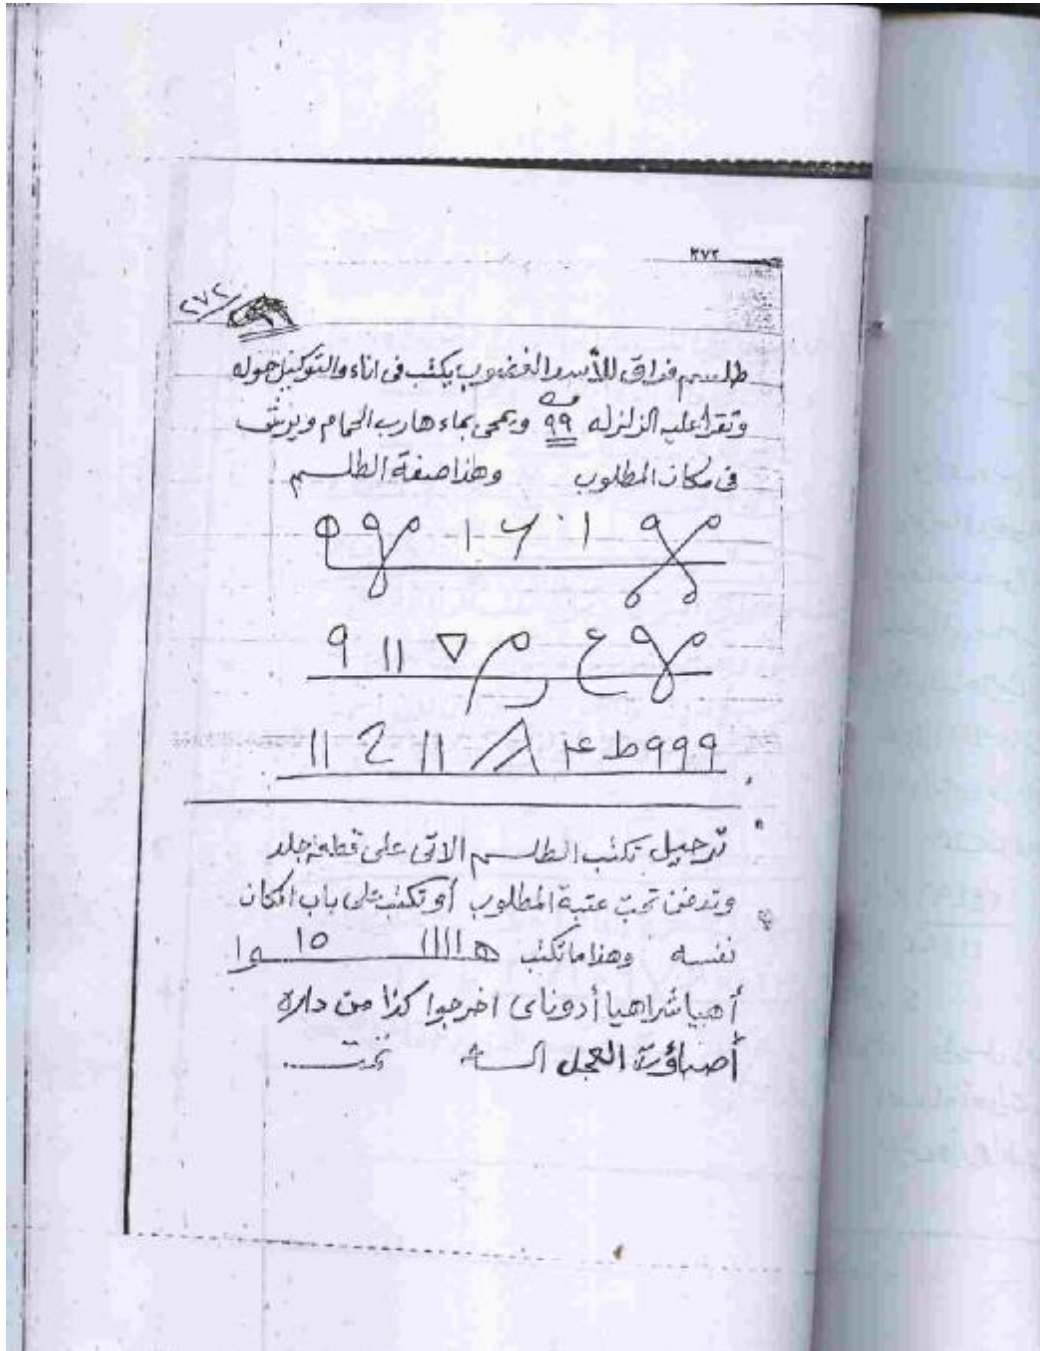 ٢٧٢
٢٧٢
طلسم فراق للأسد الغضوب يكتب فى اناء والتوكيل حوله
وتقرا عليه الزلزله ٩٩ ويمحى بماء هارب الحمام ويرش
فى مكان المطلوب وهذا صفة الطلسم
ا ٦ ٠ ا
٩ اا
اا اا ط ٩٩٩
ترحيل تكتب الطلسم الاتى على قطعة جلد
وتدفن تحت عتبة المطلوب أو تكتب على باب المكان
نفسه وهذا ما تكتب هـ اااا ١٥
أهيا شراهيا أدوناى اخرجوا كذا من داره
أصباؤت العجل تمت